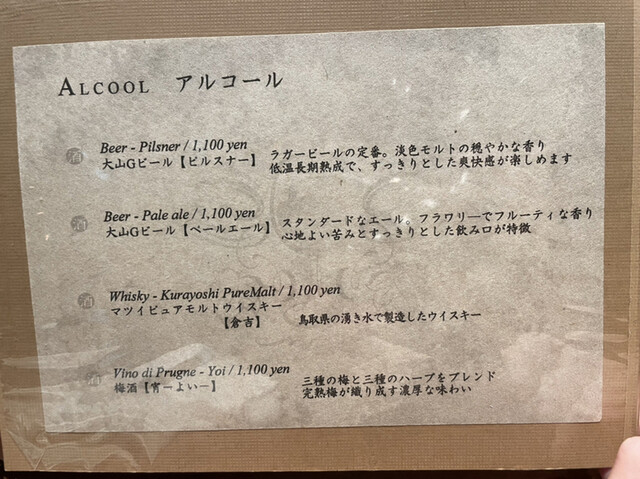 ALCOOL アルコール
酒 Beer - Pilsner / 1,100 yen
大山Gビール【ピルスナー】
ラガービールの定番。淡色モルトの穏やかな香り
低温長期熟成で、すっきりとした爽快感が楽しめます
酒 Beer - Pale ale / 1,100 yen
大山Gビール【ペールエール】
スタンダードなエール。フラワリーでフルーティな香り
心地よい苦みとすっきりとした飲み口が特徴
酒 Whisky - Kurayoshi PureMalt / 1,100 yen
マツイピュアモルトウイスキー
【倉吉】
鳥取県の湧き水で製造したウイスキー
酒 Vino di Prugne - Yoi / 1,100 yen
梅酒【宵ーよいー】
三種の梅と三種のハーブをブレンド
完熟梅が織り成す濃厚な味わい